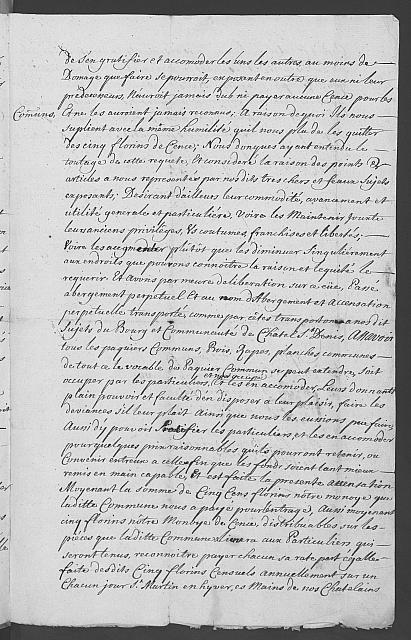 de S'en gratifier et accomoder les uns les autres, au moins de
Domage que faire se pourroit, exposant en outre que eux ni leur
predecesseurs, N'auroit jamais dub ni payer aucune Cence pour les
Comuns, Et ne les auroient jamais reconnus; A raison de quoi Ils nous
suplient avec la même humilité qu'il nous plu de les quitter
Des cinq florins de Cence; Nous donques ayant entendu le
toutage de cette requete, et consideré la raison des points et
articles a nous representés par nos dits tres chers et feaux Sujets
exposants; Desirant d'ailleurs leur commodité, avancement et
utilité generale et particuliére, Voire les Maintenir jouxte
leurs anciens privileges, Us coutumes, franchises et libertés;
Voire les acegmenter plûtôt que les diminuer Singulierement
aux endroits que pourons connoitre la raison et l'equité le
requerir. Et avons par meure deliberation sur ce eüe, Passé
abergement perpetuel Et au nom d'Abergement et accensation
perpetuelle transporté, comme par cêtes transportons a nos dit
Sujets du Bourg et Communeuté de Chatel St Denis, Assavoir
tous les paquiers Communs, Bois, Rapes, planches communes
de tout ce la vocable du Paquier Commun se peut entendre, soit
occuper par les particuliers, et non occupé Et les en accomoder, Leurs donrants
plain pouvoir et faculté d'en disposer a leur plaisir, faire les
deviances s'il leur plait Ainsi que nous les eussions pu faire,
Aussi dy pouvoir gratifier les particuliers et les en accomoder
pour quelques prix raisonnables qu'ils pouront retenir, ou
Convenir entreux a celle fin que les fonds soient tant mieux
remis en main capable, Et est faite la presente accensation
Moyenant la somme de Cinq Cens florins nôtre monoye que
laditte Commune nous a payé pour l'intrage, Aussi moyenant
cinq florins nôtre Monoye de Cence, distribuables sur les
pièces que laditte Commune livrera aux Particuliers qui
seront tenus, reconnoitre payer chacun sa rate part egallée
faite desdits Cinq florins Censuels annuellement sur un
Chacun jour St Martin en hyver, es Mains de nos Chatelains